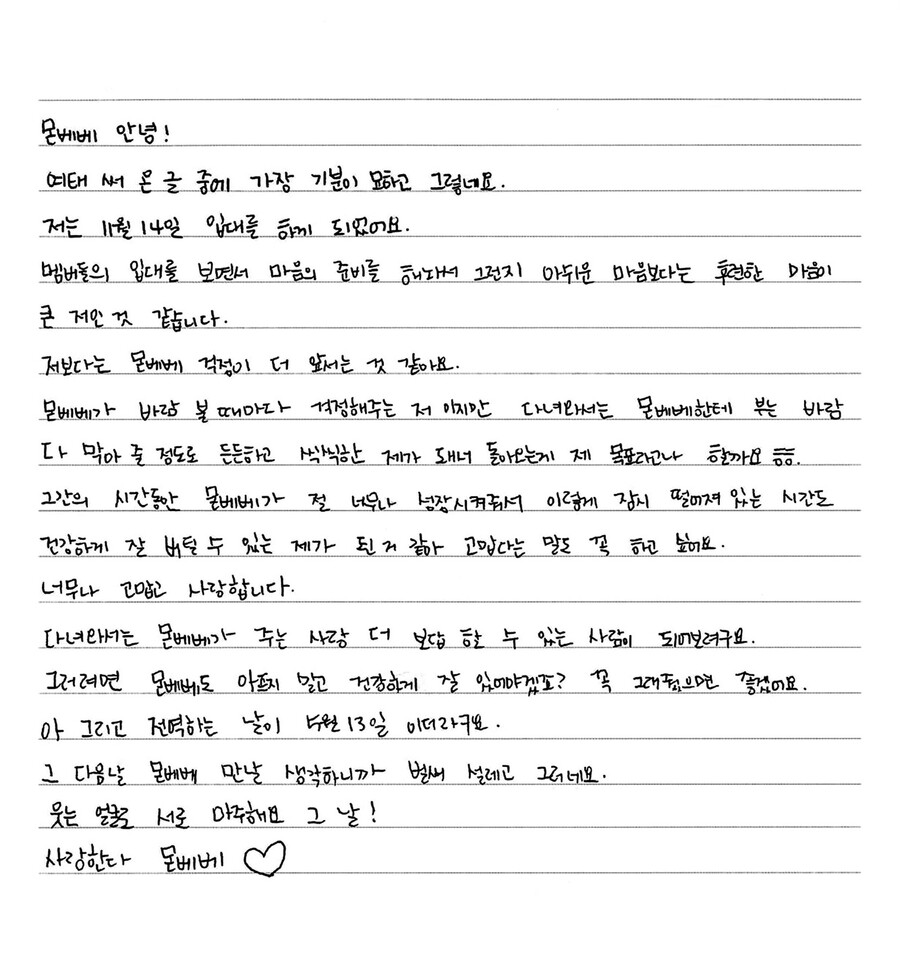 몬베베 안녕!
여태 써 온 글 중에 가장 기분이 묘하고 그렇네요.
저는 11월 14일 입대를 하게 되었어요.
멤버들의 입대를 보면서 마음의 준비를 해놔서 그런지 아쉬운 마음보다는 후련한 마음이
큰 저인 것 같습니다.
저보다는 몬베베 걱정이 더 앞서는 것 같아요.
몬베베가 바람 불 때마다 걱정해주는 저 이지만 다녀와서는 몬베베한테 부는 바람
다 막아 줄 정도로 든든하고 씩씩한 제가 돼서 돌아오는게 제 목표라고나 할까요 흠흠.
그간의 시간동안 몬베베가 절 너무나 성장시켜줘서 이렇게 잠시 떨어져 있는 시간도
건강하게 잘 버틸 수 있는 제가 된 거 같아 고맙다는 말도 꼭 하고 싶어요.
너무나 고맙고 사랑합니다.
다녀와서는 몬베베가 주는 사랑 더 보답 할 수 있는 사람이 되어보려구요.
그러려면 몬베베도 아프지 말고 건강하게 잘 있어야겠죠? 꼭 그래줬으면 좋겠어요.
아 그리고 전역하는 날이 5월 13일 이더라구요.
그 다음날 몬베베 만날 생각하니까 벌써 설레고 그러네요.
웃는 얼굴로 서로 마주해요 그 날!
사랑한다 몬베베 ♡